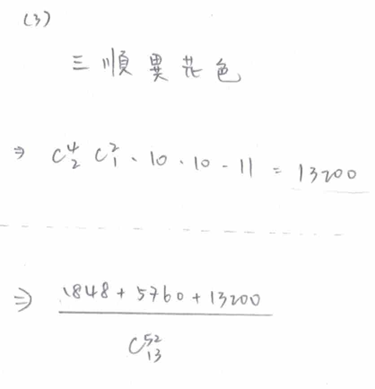 (3)
三順異花色
⇒ C⁴₂ C²₁ · 10 · 10 · 11 = 13200
⇒ (1848 + 5760 + 13200) / C⁵²₁₃